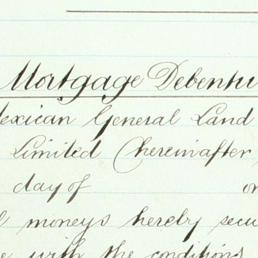 Mortgage Debentu
exican General Land
Limited (hereinafter
day of on
l moneys hereby secu
e with the conditions